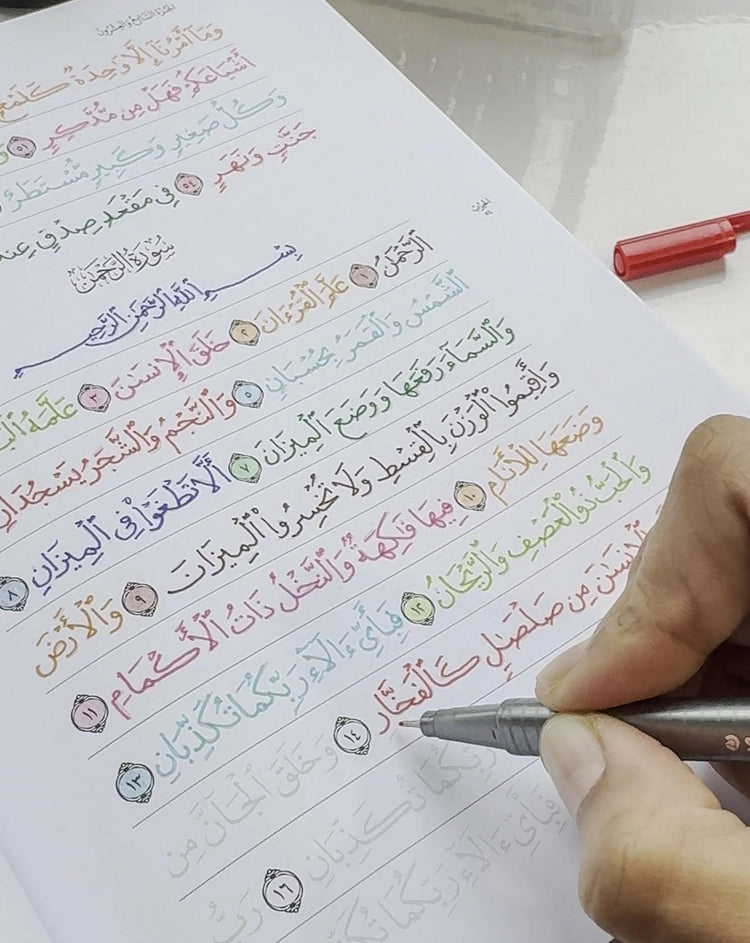 الجزء السابع والعشرون
وَمَآ أَمْرُنَآ إِلَّا وَٰحِدَةٌ كَلَمْحٍ
أَشْيَاعَكُمْ فَهَلْ مِن مُّدَّكِرٍ ٥١
وَكُلُّ صَغِيرٍ وَكَبِيرٍ مُّسْتَطَرٌ
جَنَّٰتٍ وَنَهَرٍ ٥٤ فِى مَقْعَدِ صِدْقٍ عِندَ
سُورَةُ الرَّحْمٰن
بِسْمِ ٱللَّهِ ٱلرَّحْمَٰنِ ٱلرَّحِيمِ
ٱلرَّحْمَٰنُ ١ عَلَّمَ ٱلْقُرْءَانَ ٢ خَلَقَ ٱلْإِنسَٰنَ ٣ عَلَّمَهُ
ٱلشَّمْسُ وَٱلْقَمَرُ بِحُسْبَانٍ ٥ وَٱلنَّجْمُ وَٱلشَّجَرُ يَسْجُدَانِ
وَٱلسَّمَآءَ رَفَعَهَا وَوَضَعَ ٱلْمِيزَانَ ٧ أَلَّا تَطْغَوْا۟ فِى ٱلْمِيزَانِ ٨
وَأَقِيمُوا۟ ٱلْوَزْنَ بِٱلْقِسْطِ وَلَا تُخْسِرُوا۟ ٱلْمِيزَانَ ٩ وَٱلْأَرْضَ
وَضَعَهَا لِلْأَنَامِ ١٠ فِيهَا فَٰكِهَةٌ وَٱلنَّخْلُ ذَاتُ ٱلْأَكْمَامِ ١١
وَٱلْحَبُّ ذُو ٱلْعَصْفِ وَٱلرَّيْحَانُ ١٢ فَبِأَىِّ ءَالَآءِ رَبِّكُمَا تُكَذِّبَانِ ١٣
ٱلْإِنسَٰنَ مِن صَلْصَٰلٍ كَٱلْفَخَّارِ ١٤ وَخَلَقَ ٱلْجَآنَّ مِن
رَبِّكُمَا تُكَذِّبَانِ ١٦ رَبُّ
فَبِأَىِّ ءَالَآءِ رَبِّكُمَا